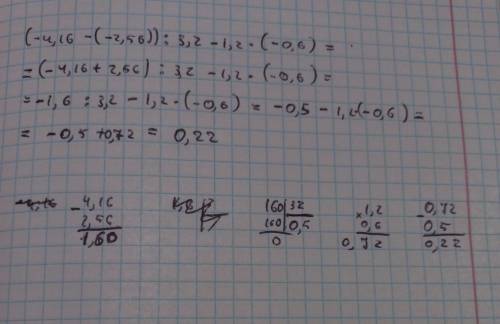 (-4,16 - (-2,56)) : 3,2 - 1,2 · (-0,6) =
= (-4,16 + 2,56) : 3,2 - 1,2 · (-0,6) =
= -1,6 : 3,2 - 1,2 · (-0,6) = -0,5 - 1,2·(-0,6) =
= -0,5 + 0,72 = 0,22
- 4,16
2,56
1,60
160 32
160 0,5
0
× 1,2
0,6
0,72
- 0,72
0,5
0,22